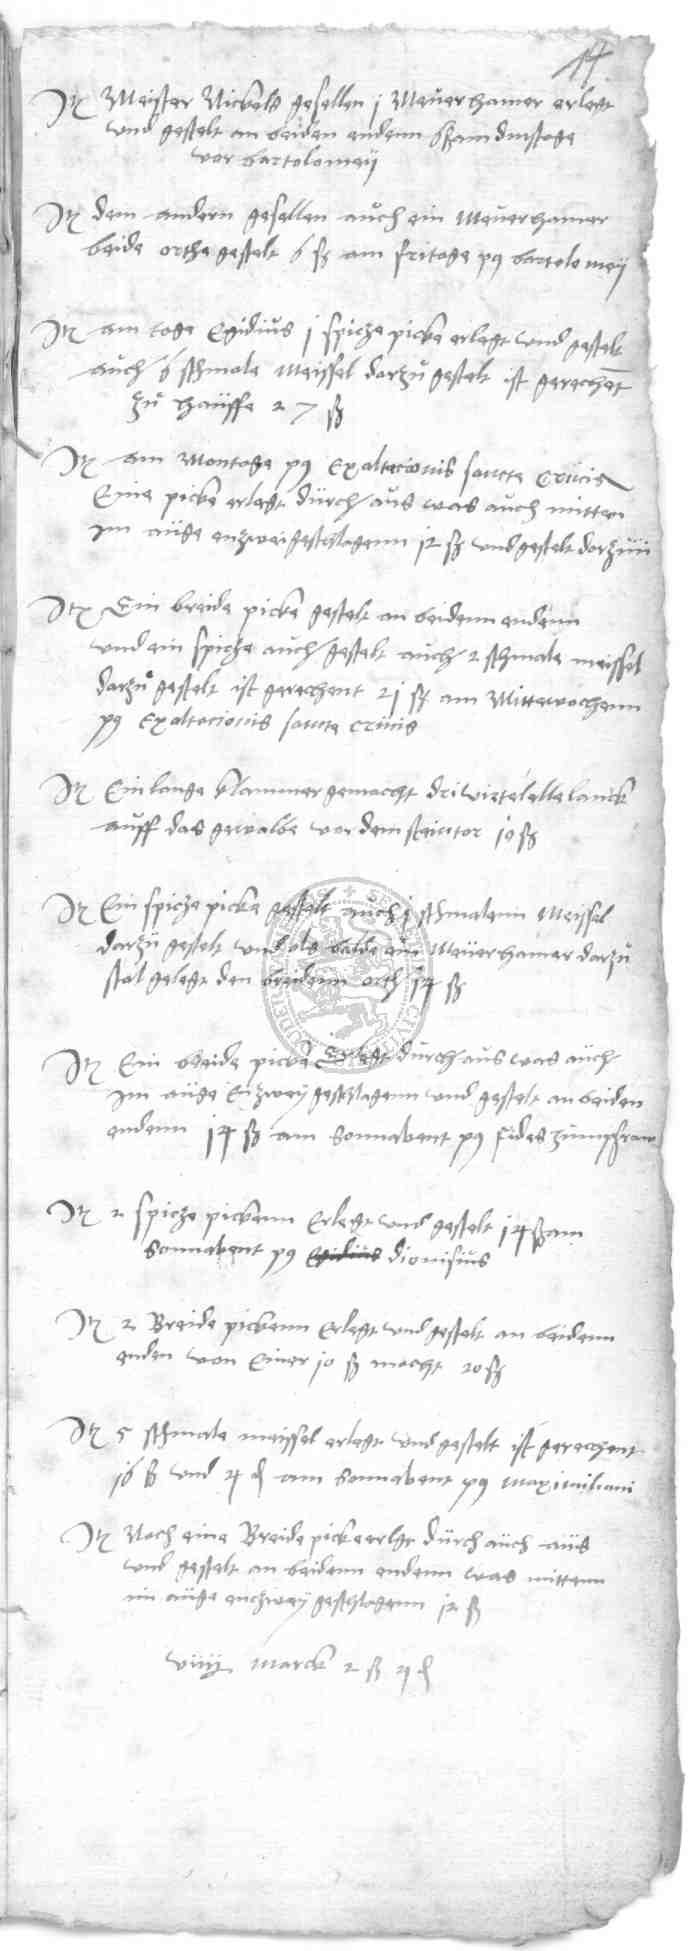 14
Itꝫ Meister Nickels gesellen j Meuerhamer erlegt
und gestelt an beiden endenn 6 ß am dinstage
vor bartolomeij
Itꝫ dem andern gesellen auch ein Meuerhamer
beide orthe gestelt 6 ß am fritage pꝯ bartolomeij
Itꝫ am tage Egidius j spicze picke erlegt und gestelt
auch 6 schmale Meissel darzu gestelt ist gerechet
zu hauffe 27 ß
Itꝫ am Montage pꝯ Exaltacionis sancte Crucis
Eine picke erlegt durch aus was auch mitten
im auge enzwei geschlagenn 12 ß und gestelt darzu
Itꝫ Ein breide picke gestelt an beidenn endenn
und ein spicze auch gestelt auch 2 schmale meissel
darzu gestelt ist gerechent 21 ß am Mittewochenn
pꝯ Exaltacionis sancte Crucis
Itꝫ Ein lange klammer gemacht dri virtel elle lanck
auff das gewalbe vor dem steintor 10 ß
Itꝫ Ein spicze picke gestelt auch j schmalenn Meissel
darzu gestelt und als balde ein Meuerhamer darzu
stal gelegt den breidenn orth 14 ß
Itꝫ Ein breide picke Erlegt durch aus was auch
im auge Enzwey geschlagenn und gestelt an beiden
endenn 14 ß am Sonnabent pꝯ fides
Itꝫ 2 spicze pickenn Erlegt und gestelt 14 ß am
Sonnabent pꝯ Egidius dionisius
Itꝫ 2 Breide pickenn Erlegt und gestelt an beidenn
enden von Einer 10 ß macht 20 ß
Itꝫ 5 schmale meissel erlegt und gestelt ist gerechent
16 ß und 4 ₰ am Sonnabent pꝯ Maximiliani
Itꝫ Noch eine Breide picke erlegt durch auch aus
und gestelt an beidenn endenn was mittenn
im auge enczwey geschlagenn 12 ß
Marck 2 ß 4 ₰